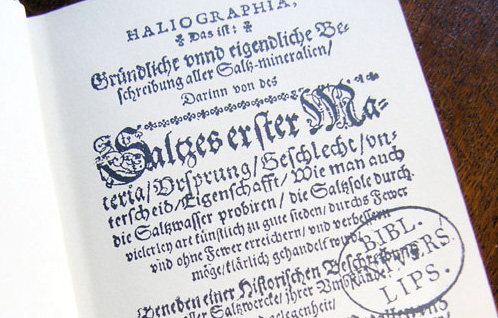 HALIOGRAPHIA,
Das ist:
Gründliche vnnd eigendliche Be-
schreibung aller Saltz-mineralien/
Darinn von des
Saltzes erster Ma-
teria/Vrsprung/Geschlecht/vn-
terscheid/Eigenschafft/Wie man auch
die Saltzwasser probiren/die Saltzsole durch
vielerley art künstlich zu gute sieden/durchs Fewer
vnd ohne Fewer erreichern/vnd verbessern
möge/klärlich gehandelt wird.
Beneben einer Historischen Beschreibung
aller Saltzwercke/ihrer Vmbstände
gelegenheit/
BIBL.
LIPS.